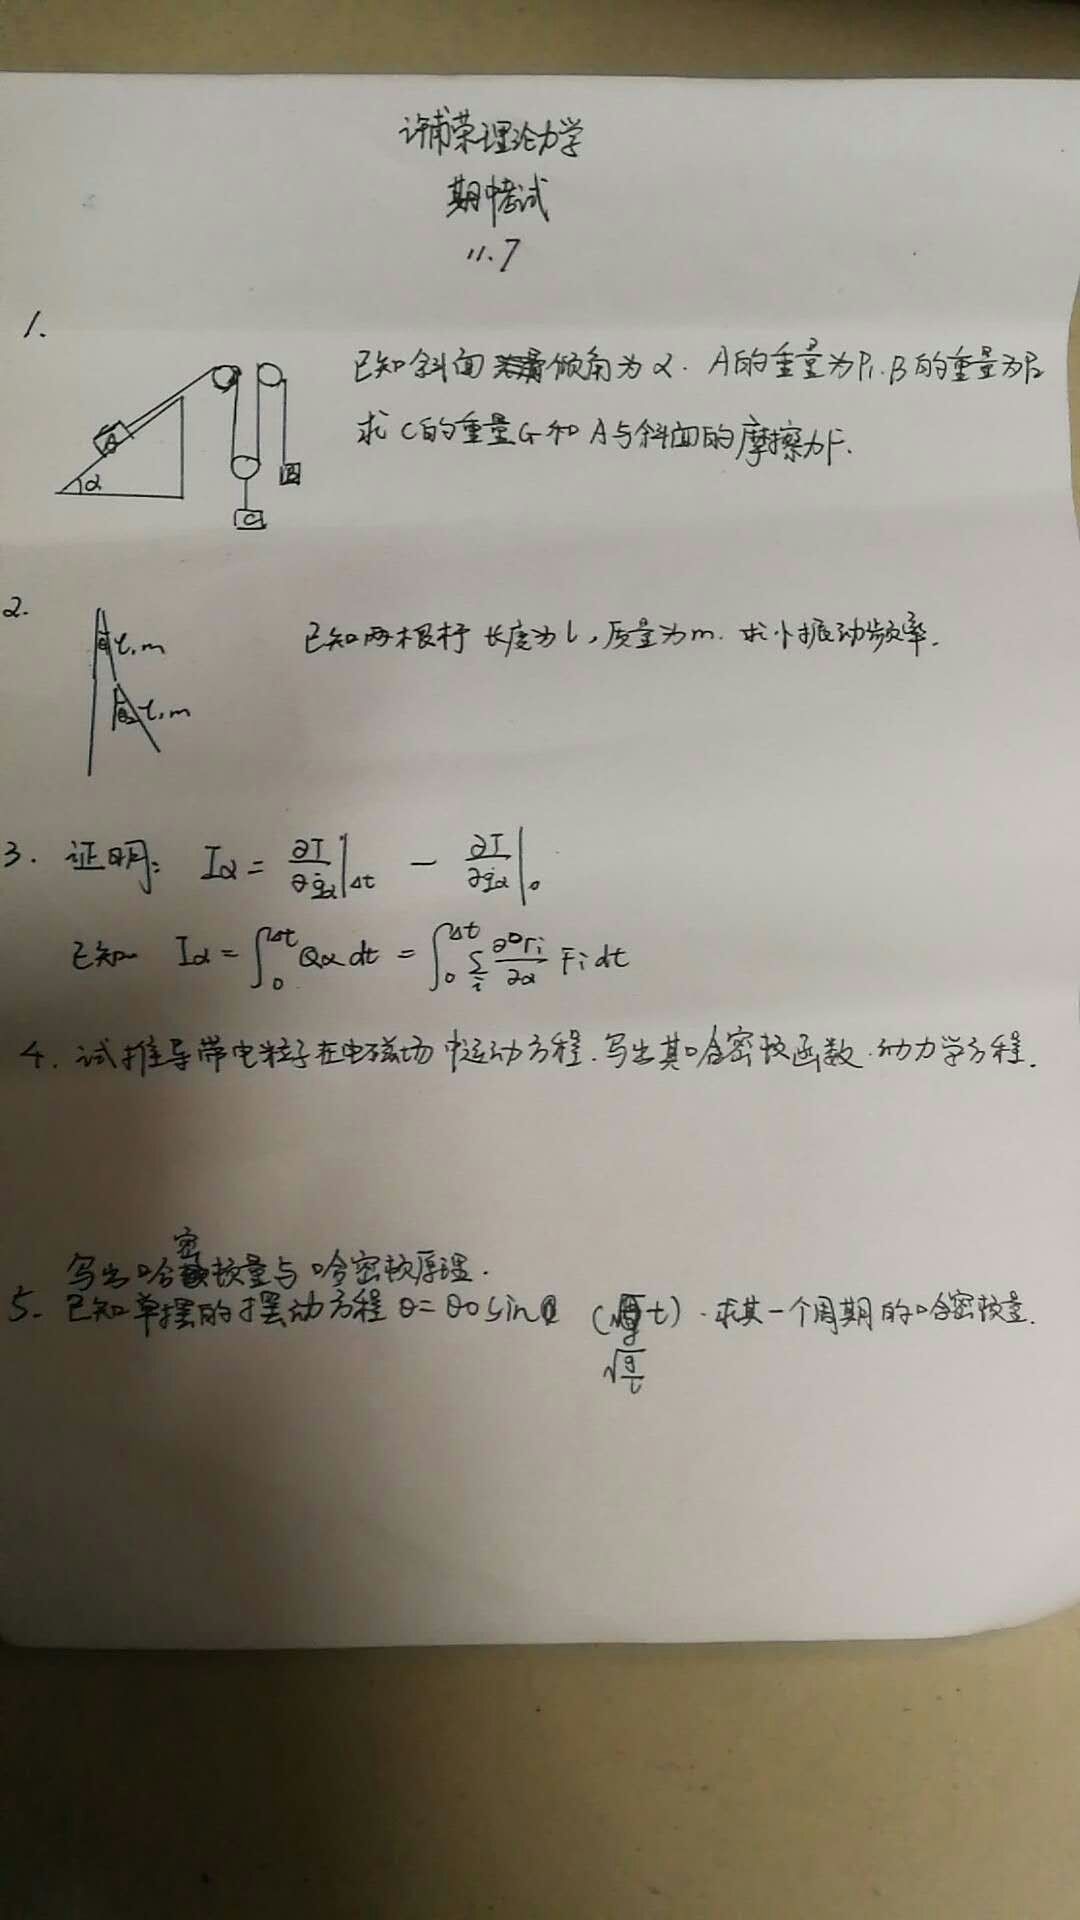 许甫荣理论力学
期中考试
11.7
1.
已知斜面 倾角为α. A的重量为P₁.B的重量为P₂
求C的重量G和A与斜面的摩擦力F.
A
α
B
C
2.
已知两根杆 长度为l,质量为m. 求小振动频率.
θ₁ l,m
θ₂ l,m
3. 证明: Iα = ∂T/∂q̇α|Δt − ∂T/∂q̇α|₀
已知 Iα = ∫₀^Δt Qα dt = ∫₀^Δt Σi ∂ri/∂α Fi dt
4. 试推导带电粒子在电磁场中运动方程.写出其哈密顿函数.动力学方程.
写出哈密顿量与哈密顿原理.
5. 已知单摆的摆动方程 θ=θ0 sin ( t) .求其一个周期的哈密顿量.
√(g/l)